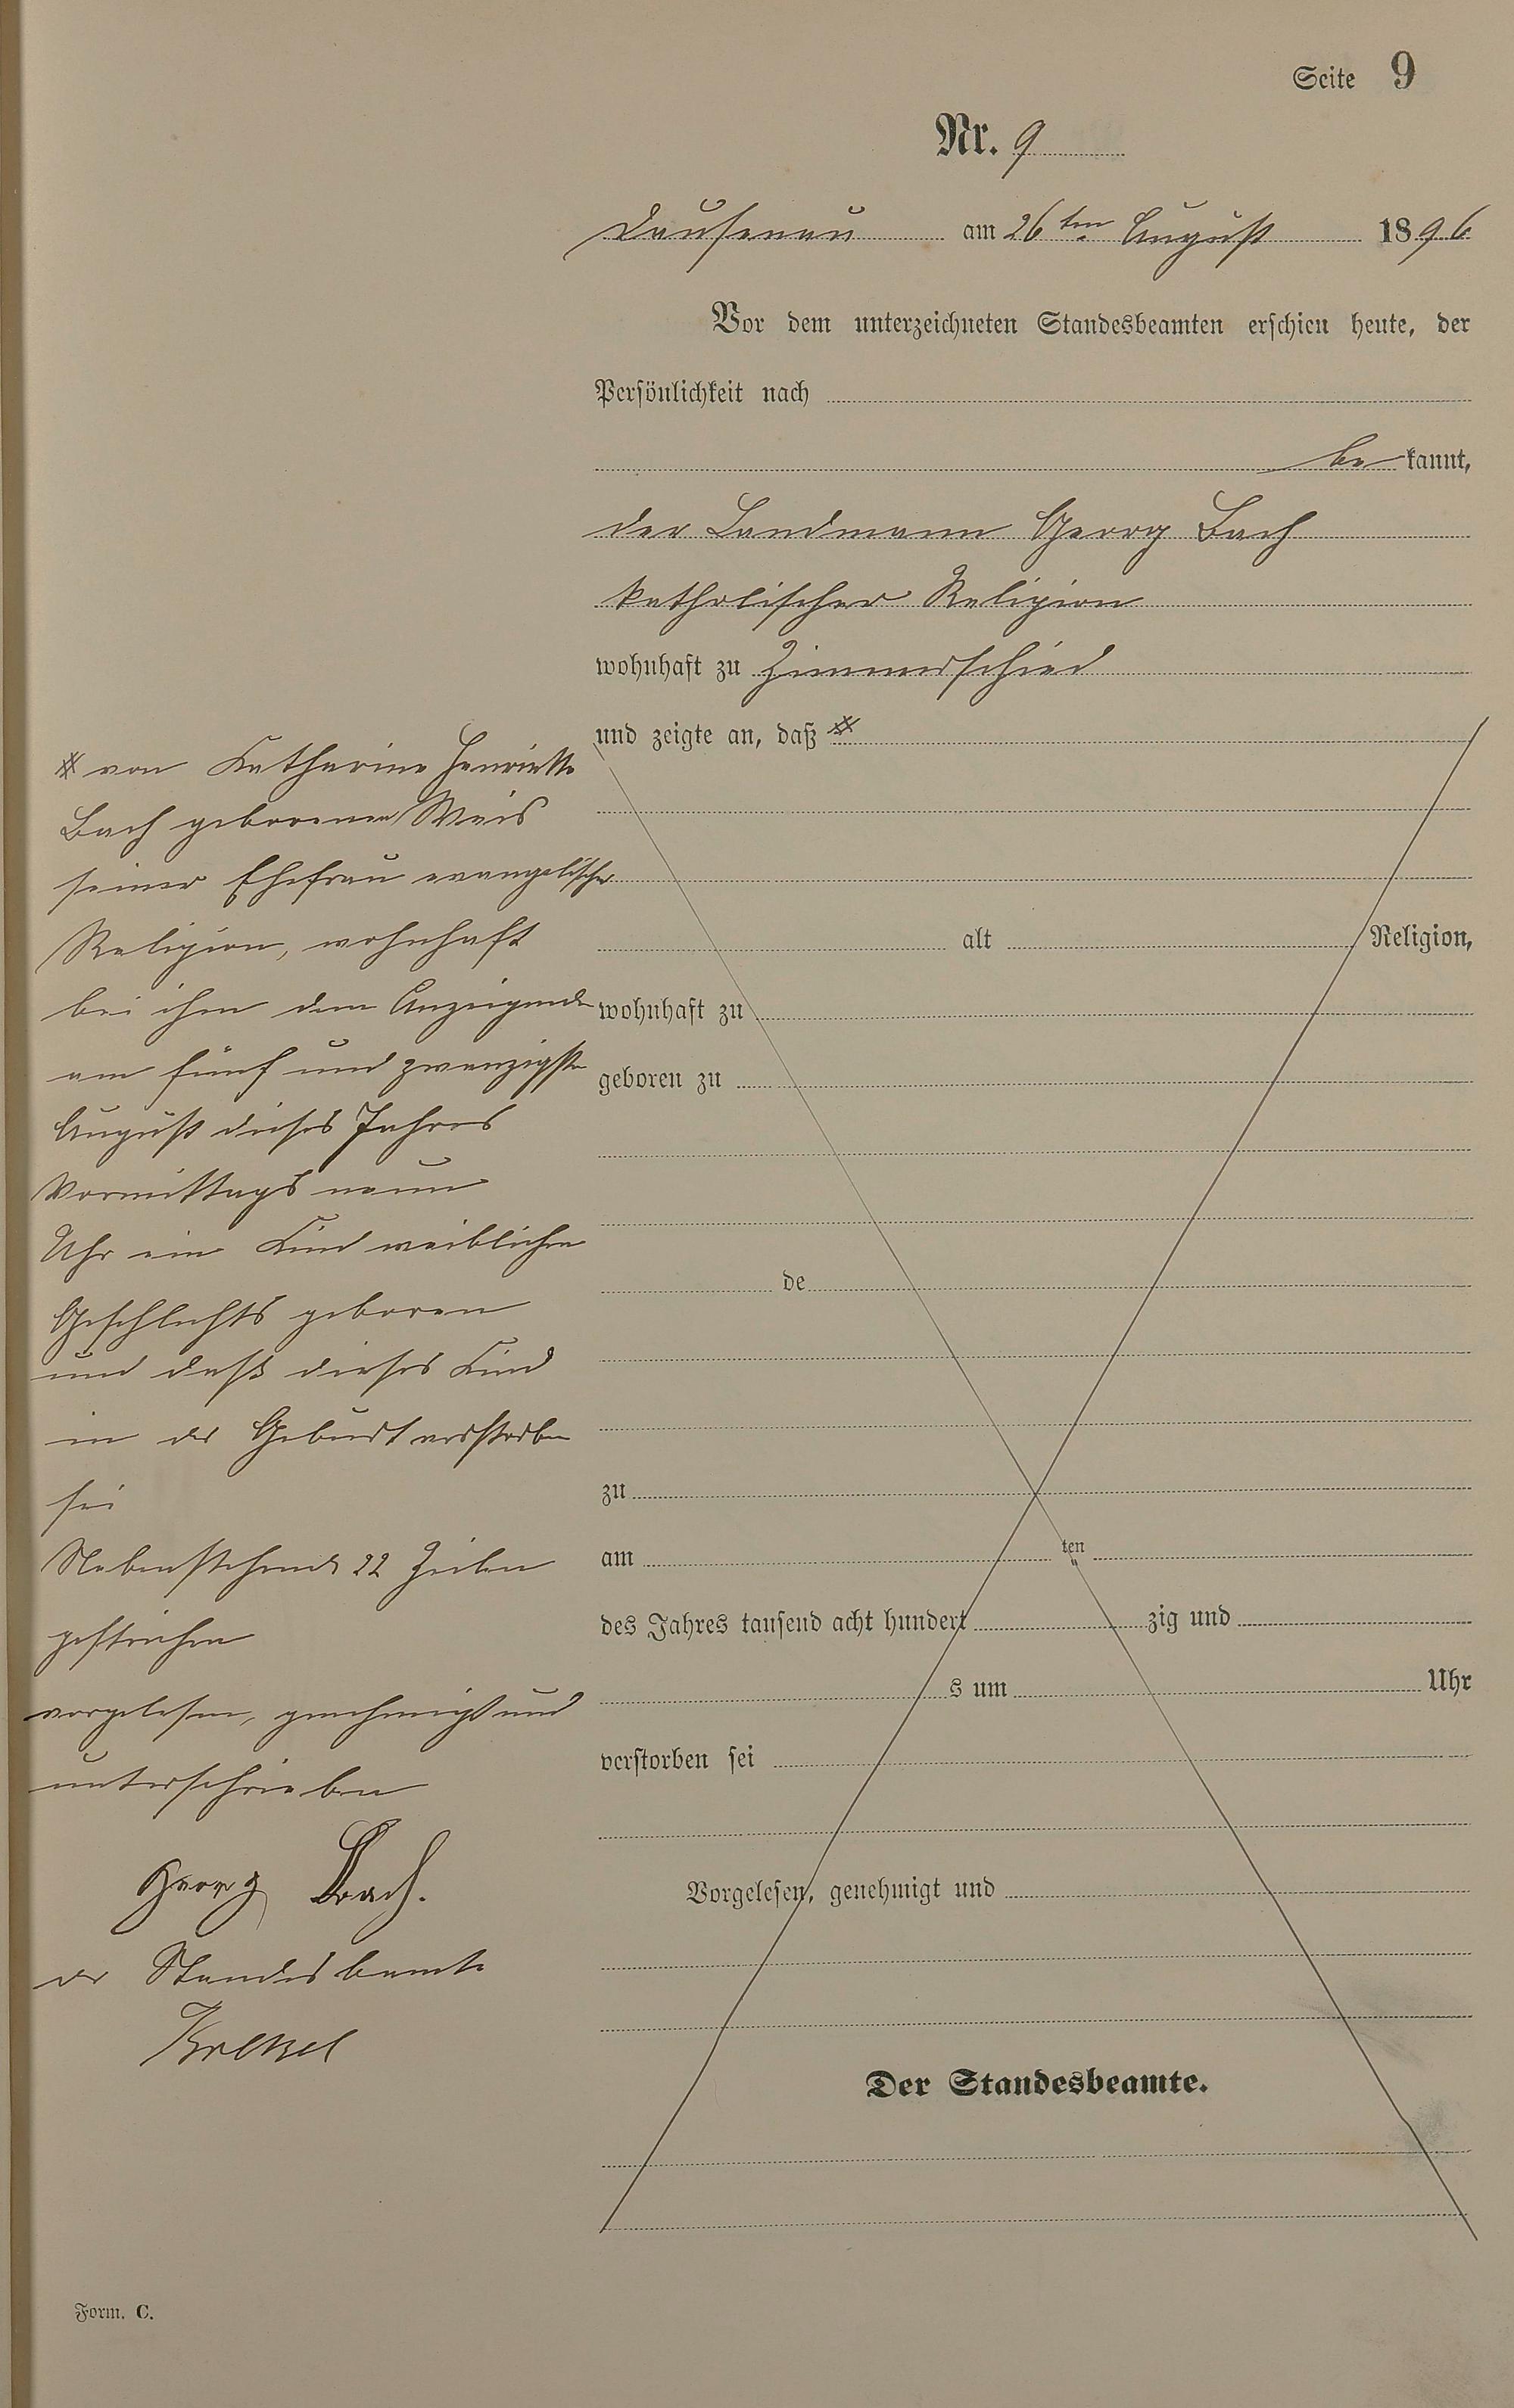 Seite 9
Nr. 9
Dausenau am 26ten August 1896
Vor dem unterzeichneten Standesbeamten erschien heute, der
Persönlichkeit nach
bekannt,
der Landmann Georg Bach
katholischer Religion
wohnhaft zu Zimmerschied
und zeigte an, daß #
# von Katharine Henriette
Bach geborenen Weis
seiner Ehefrau evangelischer
Religion, wohnhaft
bei ihm dem Anzeigende
am fünf und zwanzigsten
August dieses Jahres
Vormittags neun
Uhr ein Kind weiblichen
Geschlechts geboren
und daß dieses Kind
in der Geburt verstorben
sei
Nebenstehende 22 Zeilen
gestrichen
vorgelesen, genehmigt und
unterschrieben
Georg Bach.
der Standesbeamte
Krekel
alt Religion,
wohnhaft zu
geboren zu
de
zu
am ten
des Jahres tausend acht hundert zig und
s um Uhr
verstorben sei
Vorgelesen, genehmigt und
Der Standesbeamte.
Form. C.